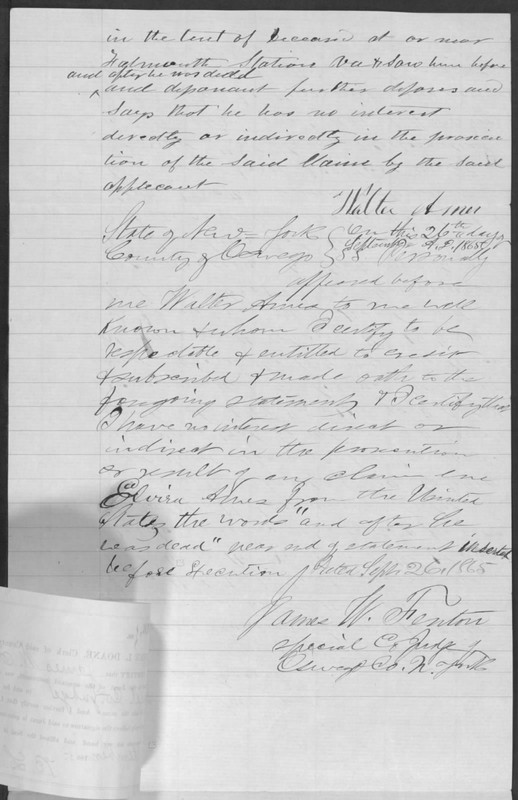 in the tent of deceased at or near
Falmouth Station Va & saw him before
and after he was dead
and deponant further deposes and
says that he has no interest
directly or indirectly in the prosecu
tion of the said Claim by the said
applicant
Walter Ames
State of New York } On this 26th day of
County of Oswego } SS September A.D. 1865 personally
appeared before
me Walter Ames to me well
Known & whom I certify to be
respectable & entitled to credit
& subscribed & made oath to the
foregoing statement & I certify that
I have no interest direct or
indirect in the prosecution
or result of any claim
Elvira Ames from the United
States the words "and after he
was dead" near end of statement inserted
before execution Dated Sept 26, 1865
James W. Fenton
Special Co. Judge of
Oswego Co. N. York